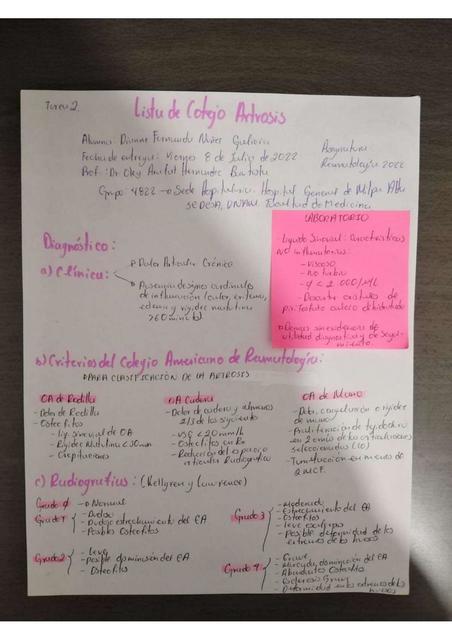 Tarea 2.
Lista de Cotejo Artrosis
Alumna: Dianne Fernanda Núñez
Fecha de entrega: Viernes 8 de Julio de 2022
Asignatura:
Reumatología 2022
Prof: Dr. Hernández Bautista
Grupo: 4822 → Sede Hospitalaria: Hospital General de Milpa Alta
SEDESA, UNAM, Facultad de Medicina
LABORATORIO
- Líquido Sinovial: Características
no inflamatorias:
- Viscoso
- No turbio
- < 2 000/mL
- Descartar cristales de
pirofosfato calcio dihidratado
Demás sin evidencias de
utilidad diagnóstica y de segui-
miento.
Diagnóstico:
a) Clínica:
→ Dolor Articular Crónico
→ Ausencia de signos cardinales
de inflamación (calor, eritema,
edema y rigidez matutina
>60 minutos)
b) Criterios del Colegio Americano de Reumatología:
PARA CLASIFICACIÓN DE LA ARTROSIS
OA de Rodilla
- Dolor de Rodilla
- Osteofitos
- Líq. sinovial de OA
- Rigidez Matutina <30min
- Crepitaciones
OA Cadera
- Dolor de cadera y al menos
2/3 de los siguientes
- VSG <20mm/h
- Osteofitos en Rx
- Reducción del espacio
articular Radiográfico
OA de Mano
- Dolor, congelación o rigidez
de mano
- de tejido duro
en 2 o más de las articulaciones
seleccionadas (10)
- Tumefacción en menos de
2 MCF.
c) Radiografías: (Kellgren y Lawrence)
Grado 0 → Normal
Grado 1
- Dudoso
- Dudoso estrechamiento del EA
- Posibles Osteofitos
Grado 2
- Leve
- Posible disminución del EA
- Osteofitos
Grado 3
- Moderado
- Estrechamiento del EA
- Osteofitos
- Leve esclerosis
- Posible deformidad de los
extremos de los huesos
Grado 4
- Grave
- Marcada disminución del EA
- Abundantes Osteofitos
- Esclerosis Grave
- Deformidad en los extremos de los
huesos